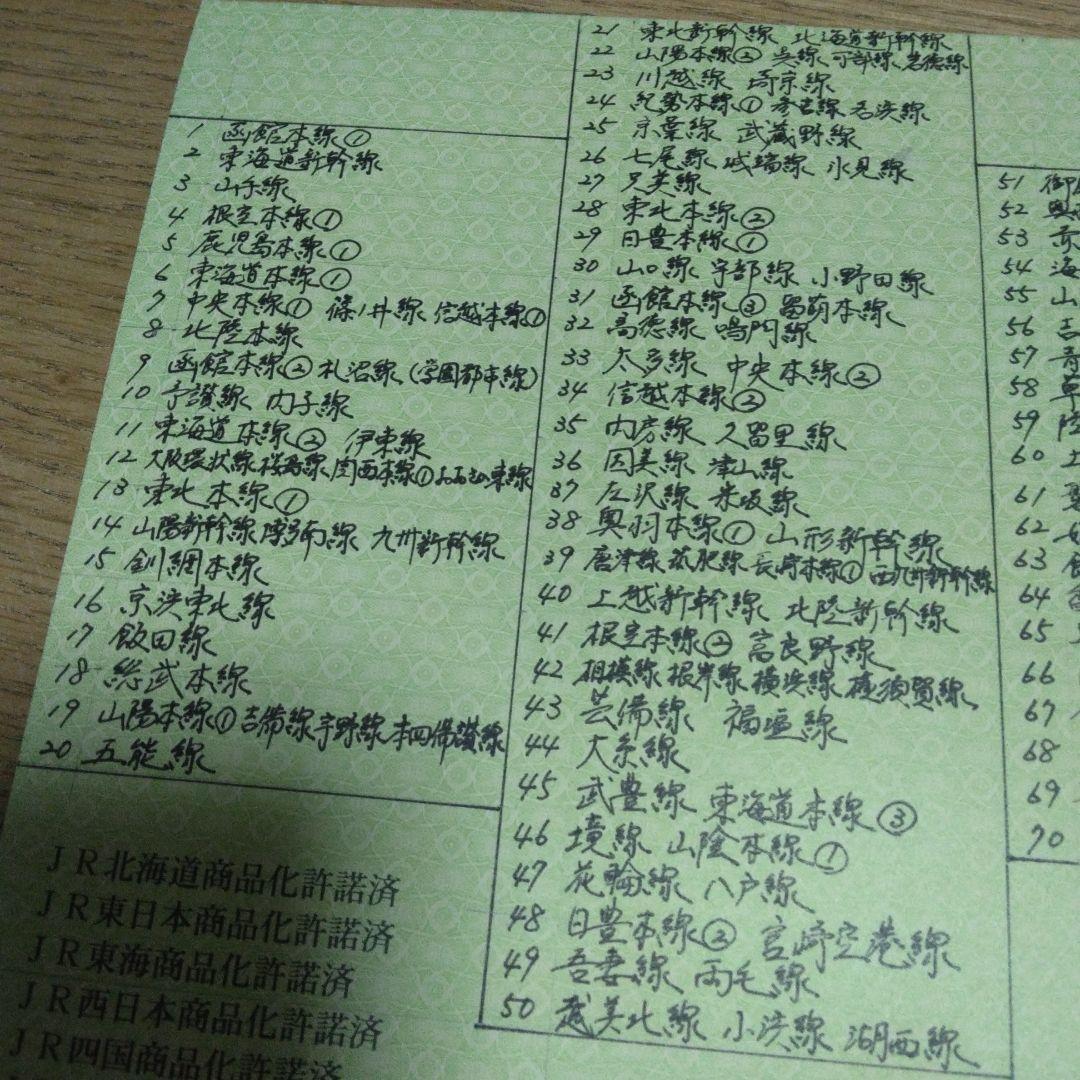 1 函館本線①
2 東海道新幹線
3 山手線
4 根室本線①
5 鹿児島本線①
6 東海道本線①
7 中央本線① 篠ノ井線 信越本線①
8 北陸本線
9 函館本線② 札沼線(学園都市線)
10 予讃線 内子線
11 東海道本線② 伊東線
12 大阪環状線 桜島線 関西本線① おおさか東線
13 東北本線①
14 山陽新幹線 博多南線 九州新幹線
15 釧網本線
16 京浜東北線
17 飯田線
18 総武本線
19 山陽本線① 吉備線 宇野線 本四備讃線
20 五能線
JR北海道商品化許諾済
JR東日本商品化許諾済
JR東海商品化許諾済
JR西日本商品化許諾済
JR四国商品化許諾済
21 東北新幹線 北海道新幹線
22 山陽本線② 呉線 可部線 岩徳線
23 川越線 埼京線
24 紀勢本線① 参宮線 名松線
25 京葉線 武蔵野線
26 七尾線 城端線 氷見線
27 只見線
28 東北本線②
29 日豊本線①
30 山口線 宇部線 小野田線
31 函館本線③ 留萌本線
32 高徳線 鳴門線
33 太多線 中央本線②
34 信越本線②
35 内房線 久留里線
36 因美線 津山線
37 左沢線 米坂線
38 奥羽本線① 山形新幹線
39 唐津線 筑肥線 長崎本線① 西九州新幹線
40 上越新幹線 北陸新幹線
41 根室本線② 富良野線
42 相模線 根岸線 横浜線 横須賀線
43 芸備線 福塩線
44 大糸線
45 武豊線 東海道本線③
46 境線 山陰本線①
47 花輪線 八戸線
48 日豊本線② 宮崎空港線
49 吾妻線 両毛線
50 越美北線 小浜線 湖西線
51 御
52 奥
53
54 海
55 山
56 吉
57 青
58
59 陸
60 土
61
62
63
64
65
66
67
68
69
70